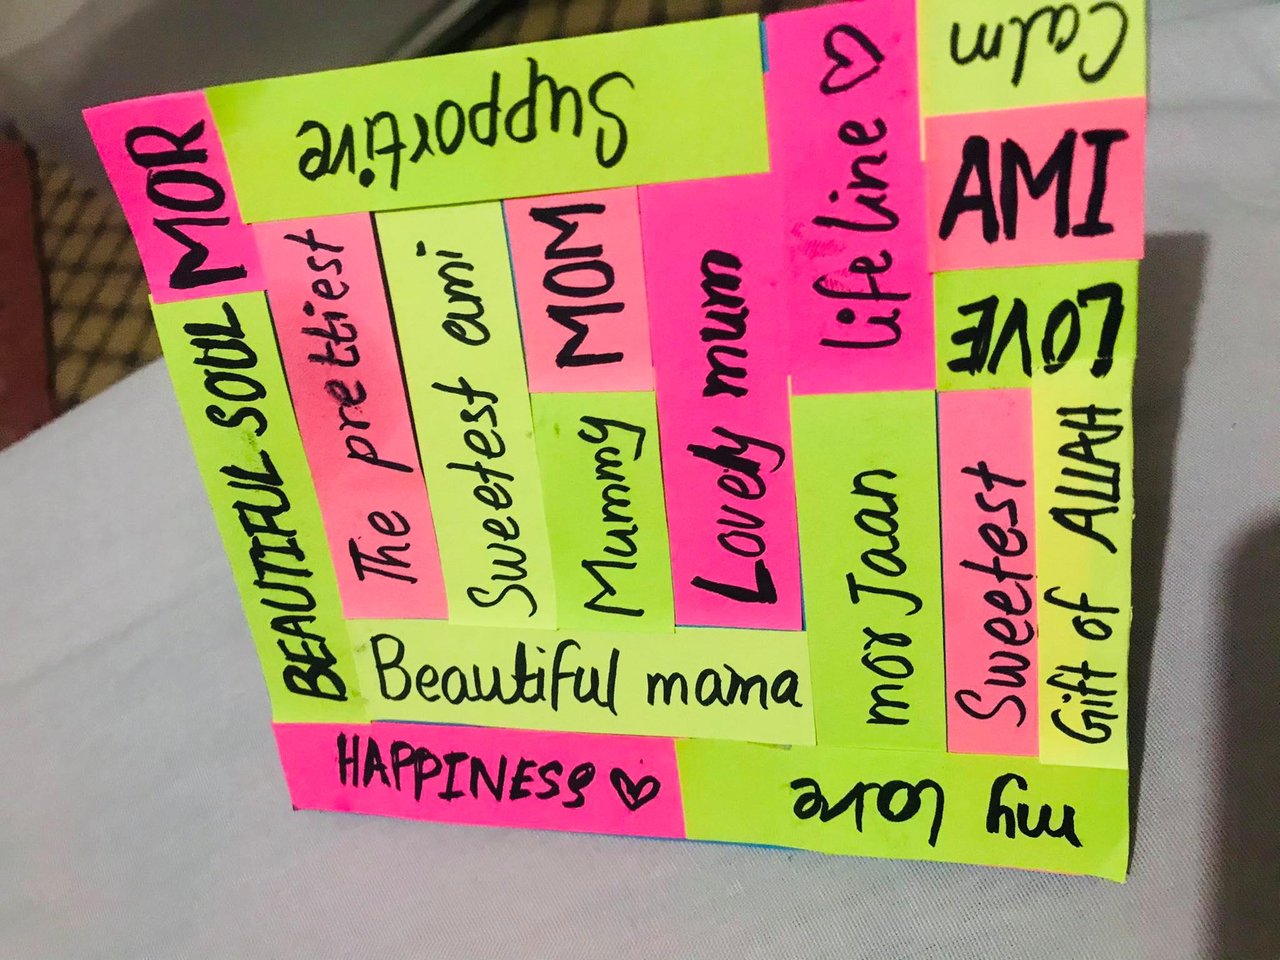 Supportive
Life line ♡
Calm
MOR
AMI
The prettiest
Sweetest ami
MOM
Lovely mum
LOVE
BEAUTIFUL SOUL
Mummy
mor Jaan
Sweetest
Gift of ALLAH
Beautiful mama
HAPPINESS ♡
my love